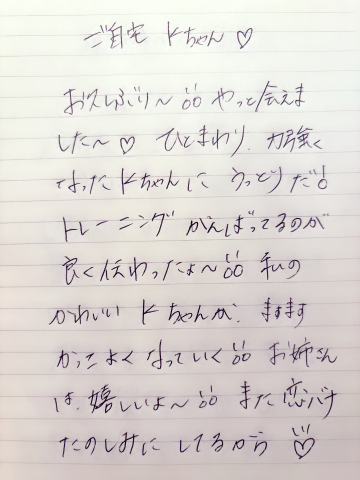 ご自宅 Kちゃん♡
お久しぶり〜!! やっと会えま
した〜♡ ひとまわり、力強く
なったKちゃんに うっとりだ!!
トレーニング がんばってるのが
良く伝わったよ〜!! 私の
かわいい Kちゃんが、ますます
かっこよく なっていく!! お姉さん
は、嬉しいよ〜!! また 恋バナ
たのしみに してるから!!♡